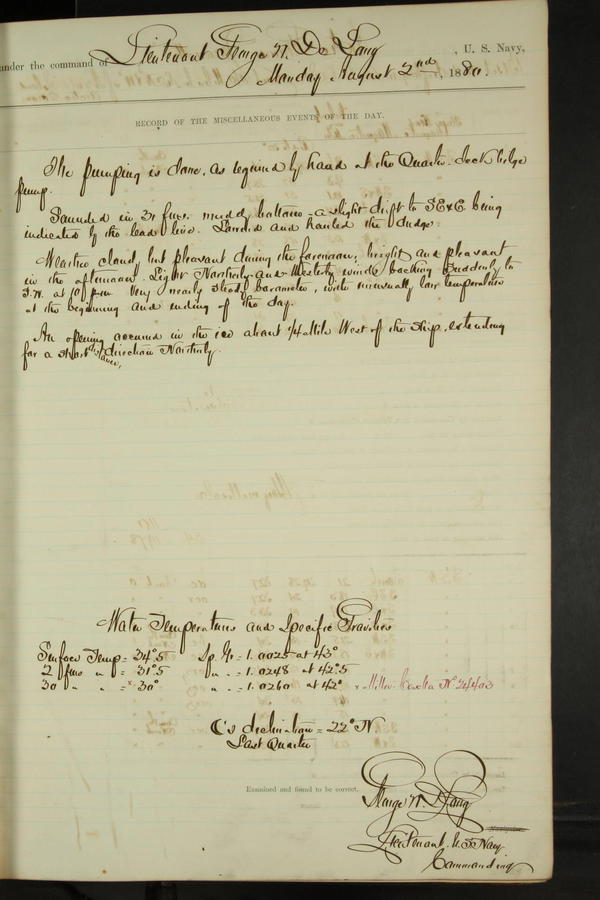 under the command of Lieutenant George W. De Long, U. S. Navy,
Monday August 2nd, 1880.
RECORD OF THE MISCELLANEOUS EVENTS OF THE DAY.
The pumping is done, as required by hand at the Quarter-deck bilge
pump.
Sounded in 31 fms. muddy bottom - a slight drift to SExE being
indicated by the lead line. Landed and hauled the dredge.
Weather cloudy but pleasant during the forenoon; bright and pleasant
in the afternoon. Light Northerly and Westerly winds backing suddenly to
S.W. at 10 p.m. Very nearly steady barometer, with unusually low temperature
at the beginning and ending of the day.
An opening occurred in the ice about 1/4 mile West of the ship, extending
for a short distance, direction Northerly.
Water Temperatures and Specific Gravities
Surface Temp = 34°5 Sp. Gr. = 1.0025 at 43°
2 fms " = 31°5 " " = 1.0248 at 42°5
30 " " = x 30° " " = 1.0260 at 42° x Miller-Casella No 24403
☾'s declination = 22° N
Last Quarter
Examined and found to be correct.
George W. De Long
Navigator.
Lieutenant U.S. Navy
Commanding